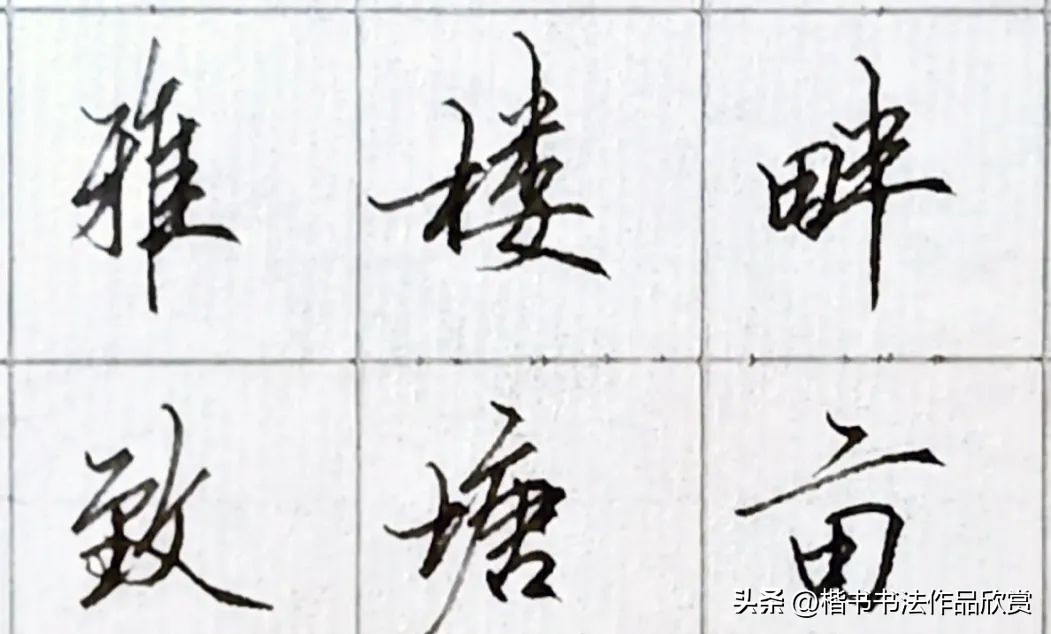 雅楼畔
致塘亩
头条 @楷书书法作品欣赏